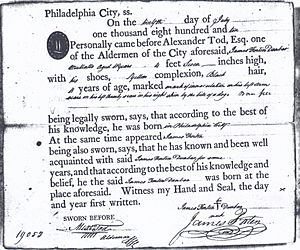 Philadelphia City, ss.
On the twelfth day of July
one thousand eight hundred and ten
Personally came before Alexander Tod, Esq. one
of the Aldermen of the City aforesaid, James Forten Dunbar
aged Eleven 4 feet Seven inches high,
with his shoes, Yellow complexion, Black hair,
years of age, marked on his left arm
on his left on his right by the bite of a dog. Born free
being legally sworn, says, that according to the best of
his knowledge, he was born in Philadelphia City
At the same time appeared James Forten
being also sworn, says, that he has known and been well
acquainted with said James Forten Dunbar for some
years, and that according to the best of his knowledge and
belief, he the said James Forten Dunbar was born at the
place aforesaid. Witness my Hand and Seal, the day
and year first written.
James Forten Dunbar
SWORN BEFORE
Alex Tod
Alderman
James Forten
19052